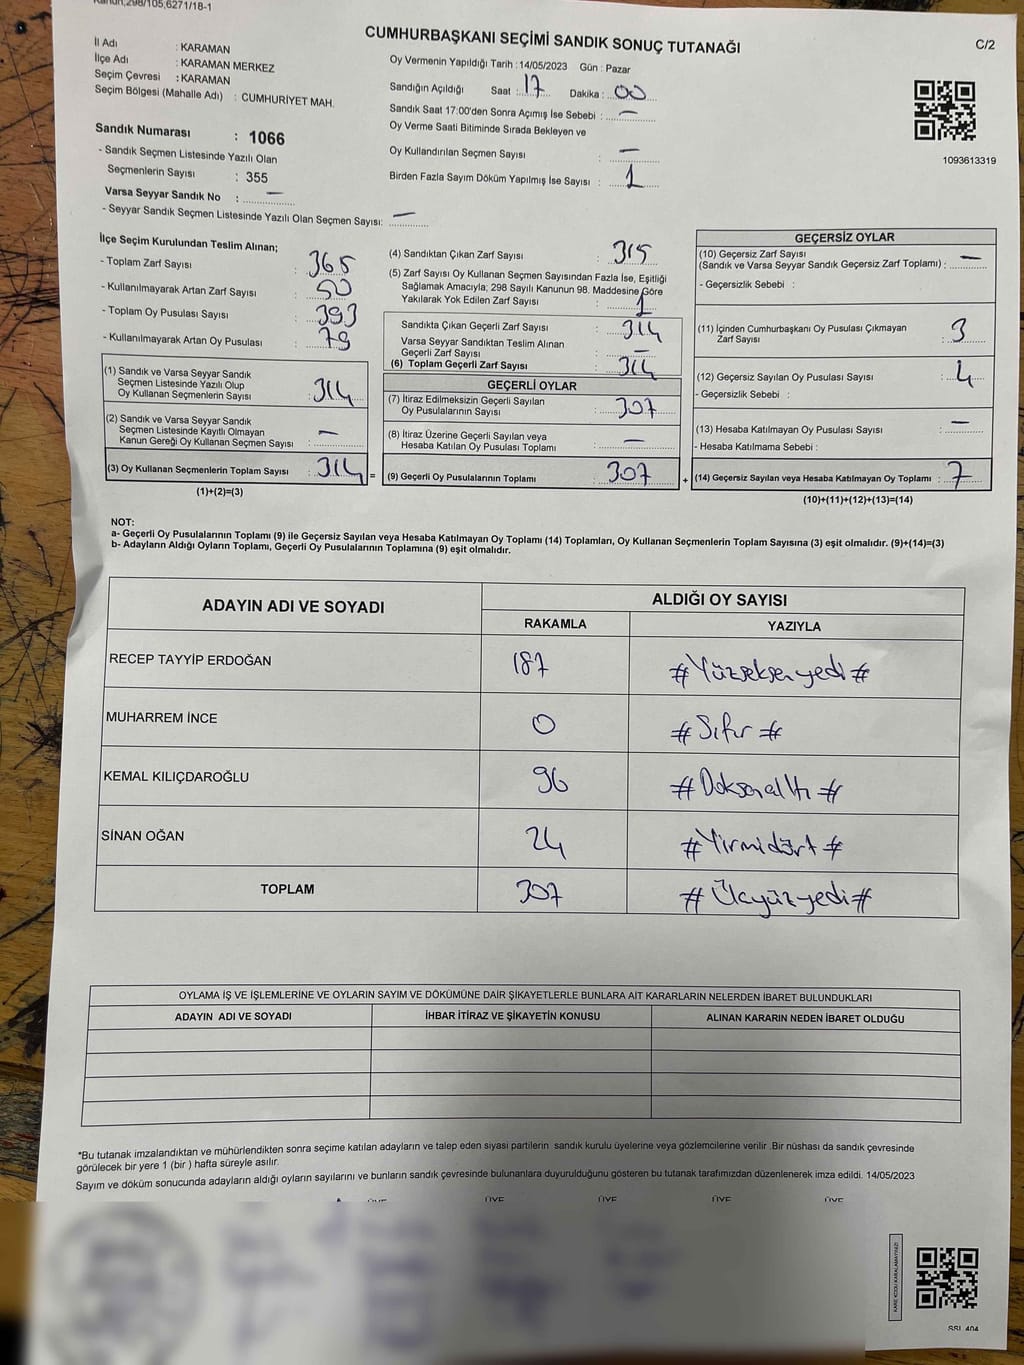 Kanun;298/105,6271/18-1
CUMHURBAŞKANI SEÇİMİ SANDIK SONUÇ TUTANAĞI
C/2
İl Adı : KARAMAN
İlçe Adı : KARAMAN MERKEZ
Seçim Çevresi : KARAMAN
Seçim Bölgesi (Mahalle Adı) : CUMHURİYET MAH.
Sandık Numarası : 1066
- Sandık Seçmen Listesinde Yazılı Olan
Seçmenlerin Sayısı : 355
Varsa Seyyar Sandık No : —
- Seyyar Sandık Seçmen Listesinde Yazılı Olan Seçmen Sayısı: —
Oy Vermenin Yapıldığı Tarih : 14/05/2023 Gün : Pazar
Sandığın Açıldığı Saat : 17 Dakika : 00
Sandık Saat 17:00'den Sonra Açımış İse Sebebi : —
Oy Verme Saati Bitiminde Sırada Bekleyen ve
Oy Kullandırılan Seçmen Sayısı : —
Birden Fazla Sayım Döküm Yapılmış İse Sayısı : 1
1093613319
İlçe Seçim Kurulundan Teslim Alınan;
- Toplam Zarf Sayısı : 365
- Kullanılmayarak Artan Zarf Sayısı : 50
- Toplam Oy Pusulası Sayısı : 393
- Kullanılmayarak Artan Oy Pusulası : 79
(1) Sandık ve Varsa Seyyar Sandık
Seçmen Listesinde Yazılı Olup
Oy Kullanan Seçmenlerin Sayısı : 314
(2) Sandık ve Varsa Seyyar Sandık
Seçmen Listesinde Kayıtlı Olmayan
Kanun Gereği Oy Kullanan Seçmen Sayısı : —
(3) Oy Kullanan Seçmenlerin Toplam Sayısı : 314 =
(1)+(2)=(3)
(4) Sandıktan Çıkan Zarf Sayısı : 315
(5) Zarf Sayısı Oy Kullanan Seçmen Sayısından Fazla İse, Eşitliği
Sağlamak Amacıyla; 298 Sayılı Kanunun 98. Maddesine Göre
Yakılarak Yok Edilen Zarf Sayısı : 1
Sandıkta Çıkan Geçerli Zarf Sayısı : 314
Varsa Seyyar Sandıktan Teslim Alınan
Geçerli Zarf Sayısı : —
(6) Toplam Geçerli Zarf Sayısı : 314
GEÇERLİ OYLAR
(7) İtiraz Edilmeksizin Geçerli Sayılan
Oy Pusulalarının Sayısı : 307
(8) İtiraz Üzerine Geçerli Sayılan veya
Hesaba Katılan Oy Pusulası Toplamı : —
(9) Geçerli Oy Pusulalarının Toplamı : 307 +
GEÇERSİZ OYLAR
(10) Geçersiz Zarf Sayısı
(Sandık ve Varsa Seyyar Sandık Geçersiz Zarf Toplamı) : —
- Geçersizlik Sebebi :
(11) İçinden Cumhurbaşkanı Oy Pusulası Çıkmayan
Zarf Sayısı : 3
(12) Geçersiz Sayılan Oy Pusulası Sayısı : 4
- Geçersizlik Sebebi :
(13) Hesaba Katılmayan Oy Pusulası Sayısı : —
- Hesaba Katılmama Sebebi :
(14) Geçersiz Sayılan veya Hesaba Katılmayan Oy Toplamı : 7
(10)+(11)+(12)+(13)=(14)
NOT:
a- Geçerli Oy Pusulalarının Toplamı (9) ile Geçersiz Sayılan veya Hesaba Katılmayan Oy Toplamı (14) Toplamları, Oy Kullanan Seçmenlerin Toplam Sayısına (3) eşit olmalıdır. (9)+(14)=(3)
b- Adayların Aldığı Oyların Toplamı, Geçerli Oy Pusulalarının Toplamına (9) eşit olmalıdır.
ADAYIN ADI VE SOYADI ALDIĞI OY SAYISI
RAKAMLA YAZIYLA
RECEP TAYYİP ERDOĞAN 187 #Yüzseksenyedi#
MUHARREM İNCE 0 #Sıfır#
KEMAL KILIÇDAROĞLU 96 #Doksanaltı#
SİNAN OĞAN 24 #Yirmidört#
TOPLAM 307 #Üçyüzyedi#
OYLAMA İŞ VE İŞLEMLERİNE VE OYLARIN SAYIM VE DÖKÜMÜNE DAİR ŞİKAYETLERLE BUNLARA AİT KARARLARIN NELERDEN İBARET BULUNDUKLARI
ADAYIN ADI VE SOYADI İHBAR İTİRAZ VE ŞİKAYETİN KONUSU ALINAN KARARIN NEDEN İBARET OLDUĞU
*Bu tutanak imzalandıktan ve mühürlendikten sonra seçime katılan adayların ve talep eden siyasi partilerin sandık kurulu üyelerine veya gözlemcilerine verilir .Bir nüshası da sandık çevresinde
görülecek bir yere 1 (bir ) hafta süreyle asılır.
Sayım ve döküm sonucunda adayların aldığı oyların sayılarını ve bunların sandık çevresinde bulunanlara duyurulduğunu gösteren bu tutanak tarafımızdan düzenlenerek imza edildi. 14/05/2023
ÜYE ÜYE ÜYE ÜYE ÜYE
KARE KODU KARALAMAYINIZ!